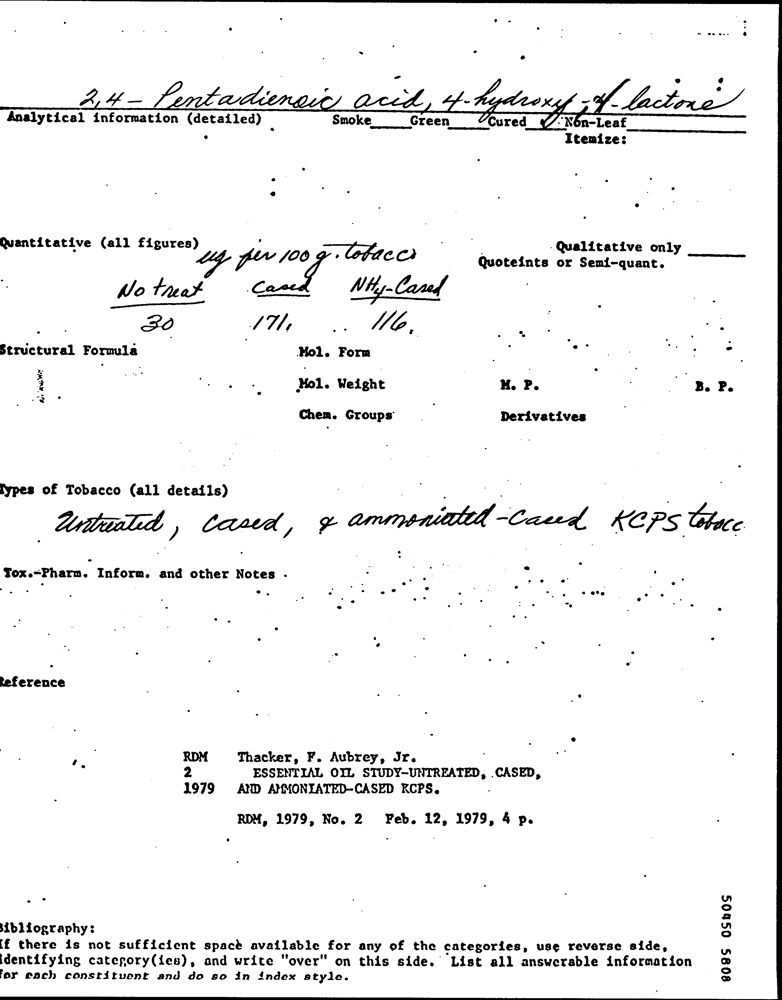 2,4-Pentadienoic acid, 4-hydroxy-γ-lactone
Analytical information (detailed) Smoke____Green____Cured ✓ Non-Leaf____
Itemize:
Quantitative (all figures) ug per 100 g. tobacco Qualitative only ____
Quoteints or Semi-quant.
No treat Cased NH4-Cased
30 171. 116.
Structural Formula Mol. Form
Mol. Weight M. P. B. P.
Chem. Groups Derivatives
Types of Tobacco (all details)
Untreated, cased, & ammoniated-cased KCPS tobacc
Tox.-Pharm. Inform. and other Notes
Reference
RDM Thacker, F. Aubrey, Jr.
2 ESSENTIAL OIL STUDY-UNTREATED, CASED,
1979 AND AMMONIATED-CASED KCPS.
RDM, 1979, No. 2 Feb. 12, 1979, 4 p.
Bibliography:
If there is not sufficient space available for any of the categories, use reverse side,
identifying category(ies), and write "over" on this side. List all answerable information
for each constituent and do so in index style.
50450 5808